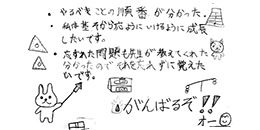 ・やるべきことの順番が分かった。
・私は基そから応ようにいけるように成長
したいです。
・忘すれた問題も先生が教えてくれた
分かったので それを忘れずに覚えた
いです。
がんばるぞ!!
オー